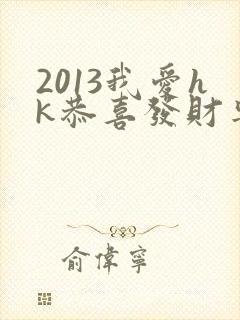 2013我愛h
K恭喜發財
俞偉寧